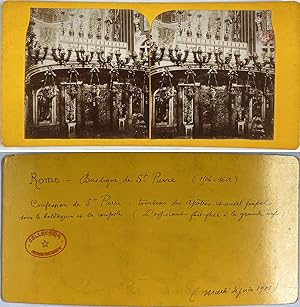 Rome - Basilique de St Pierre (1506-1612)
Confession de St Pierre : tombeau des Apôtres et autel papal
sous le baldaquin et la coupole (L'officiant fait face à la grande nef
COLLECTION
(Mardi juin 1905)